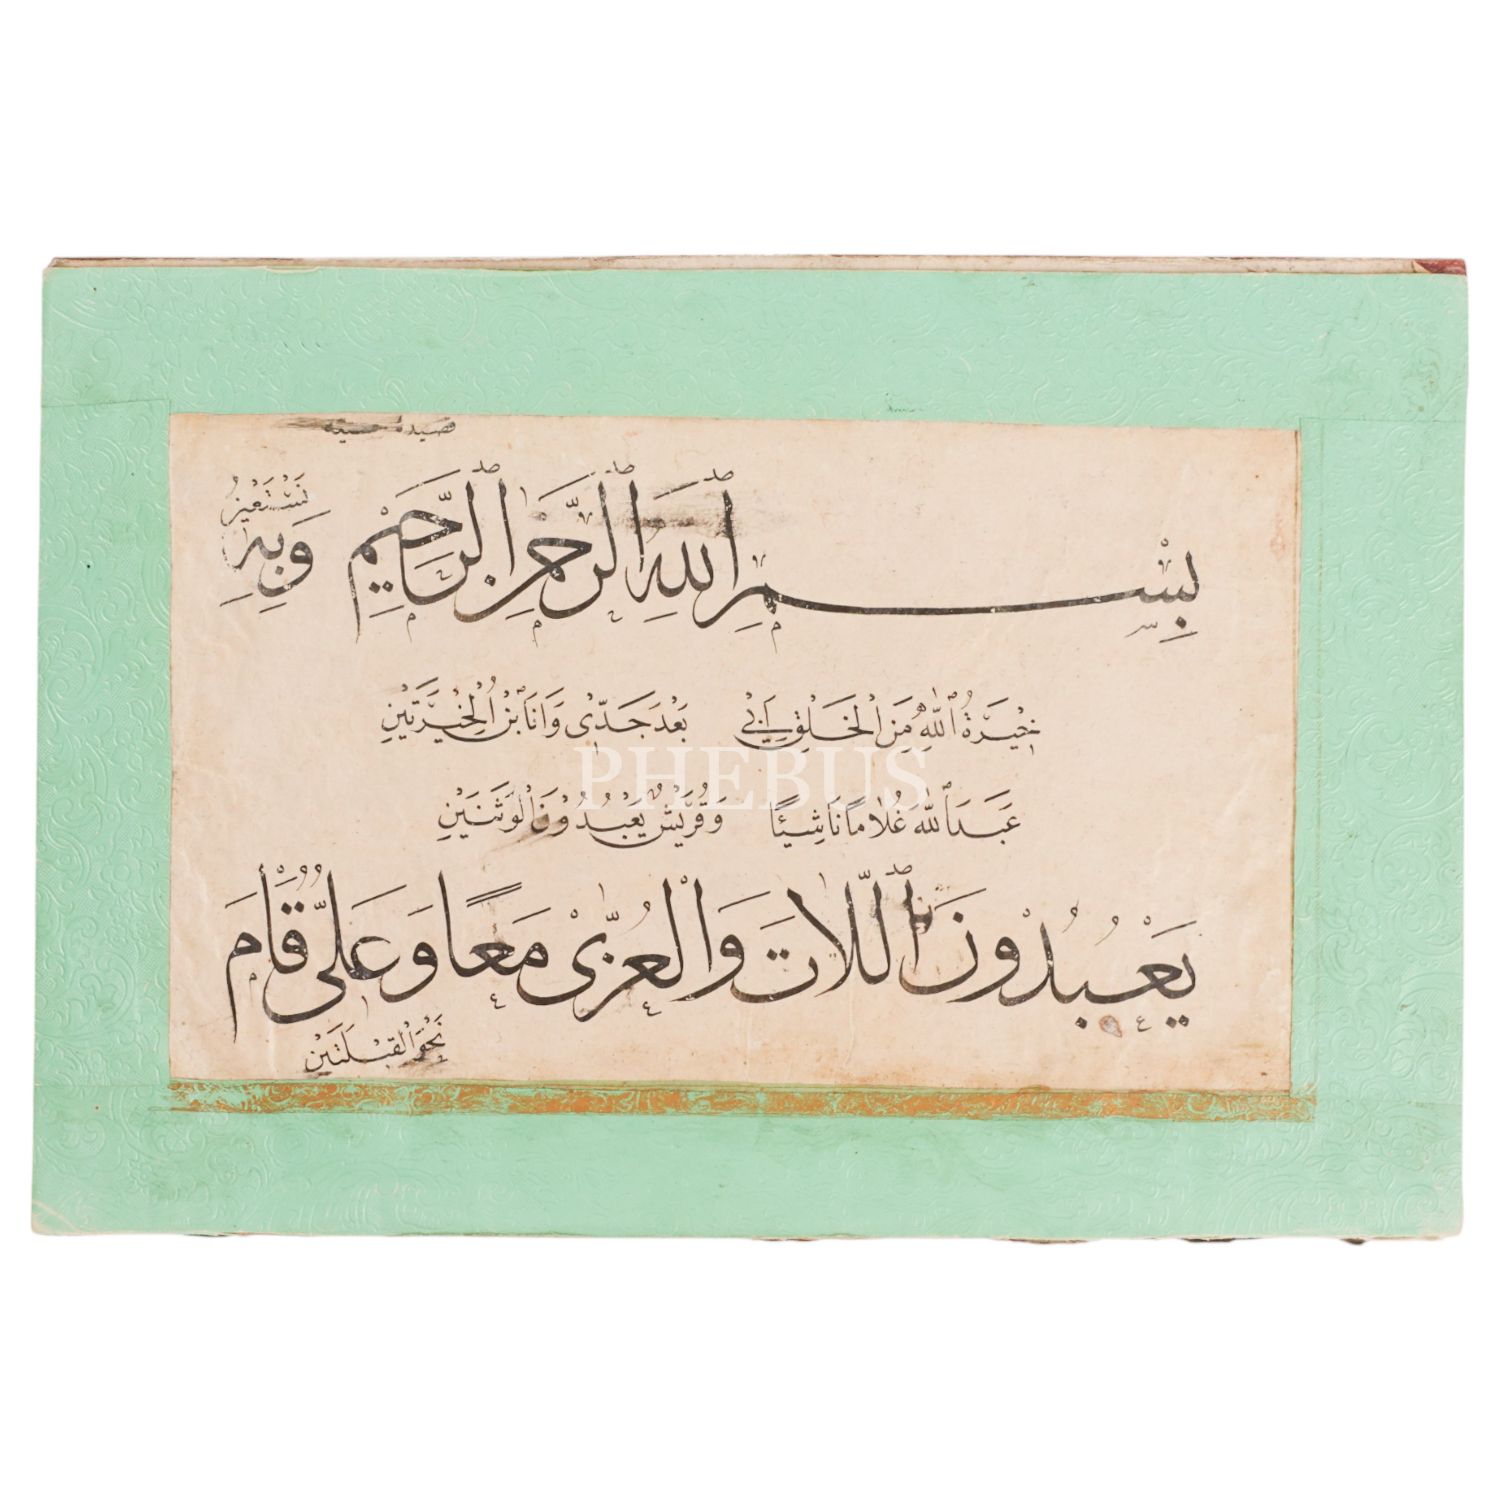 قصيدهٔ حسينيه
بِسْمِ ٱللّٰهِ ٱلرَّحْمٰنِ ٱلرَّحِيمِ وَبِهِ نَسْتَعِينُ
خِيَرَةُ ٱللّٰهِ مِنَ ٱلْخَلْقِ اَبِي بَعْدَ جَدِّى وَاَنَا ٱبْنُ ٱلْخِيَرَتَيْنِ
PHEBUS
عَبَدَ ٱللّٰهَ غُلَامًا نَاشِيئًا وَقُرَيْشٌ يَعْبُدُوْنَ ٱلْوَثَنَيْنِ
يَعْبُدُوْنَ ٱللَّاتَ وَالْعُزّٰى مَعًا وَعَلِىٌّ قَامَ
نَحْوَ ٱلْقِبْلَتَيْنِ